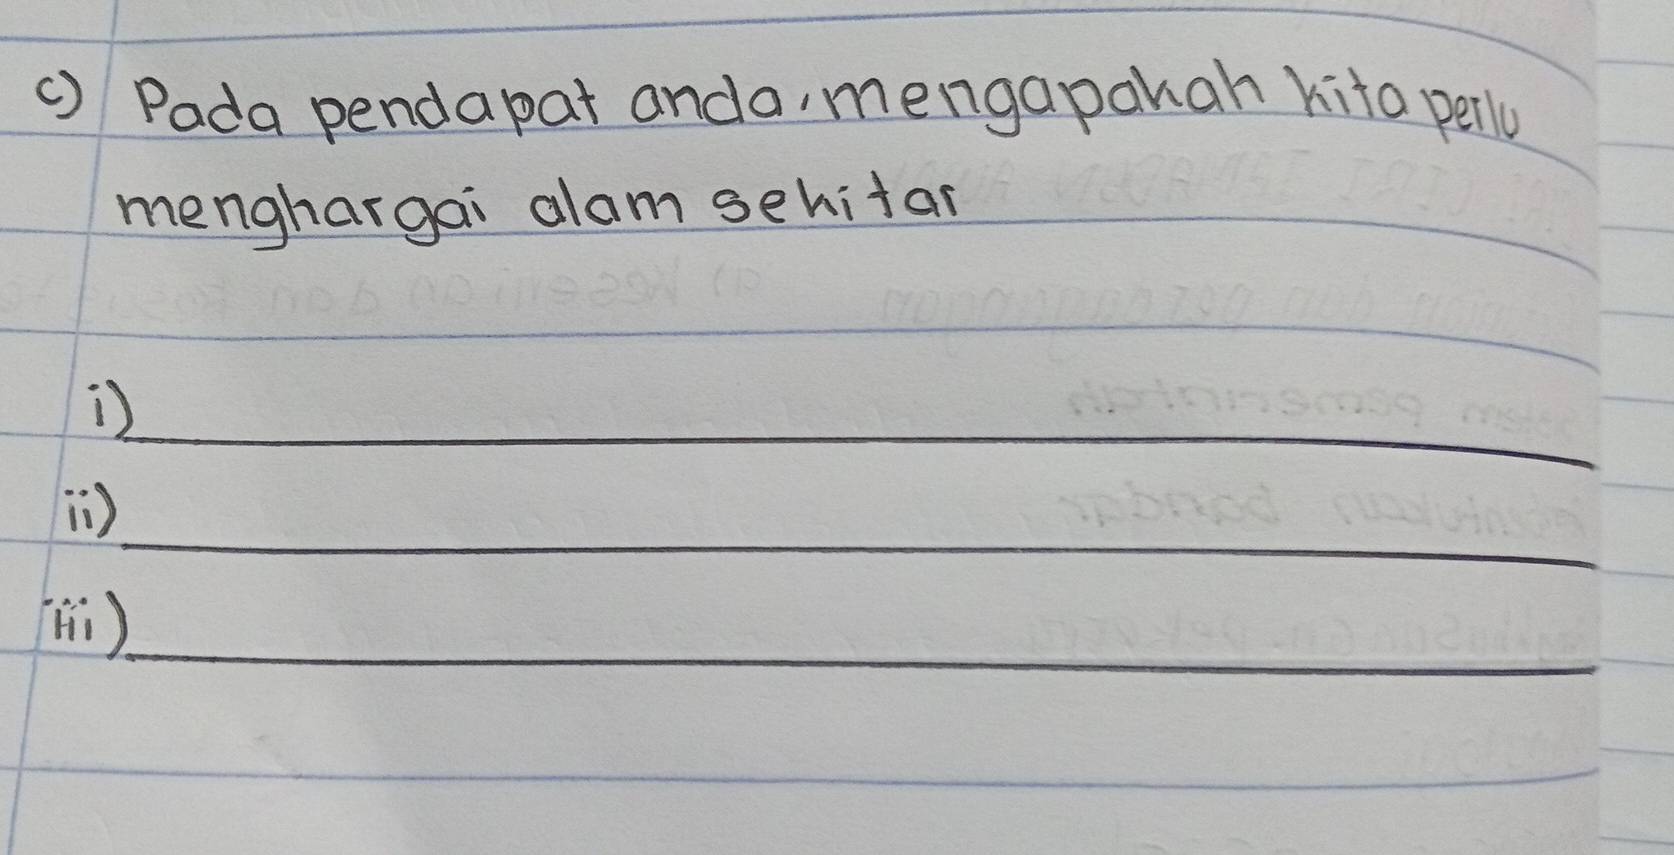 c) Pada pendapat anda, mengapakah kita perlu
menghargai alam sekitar
i)
ii)
iii)